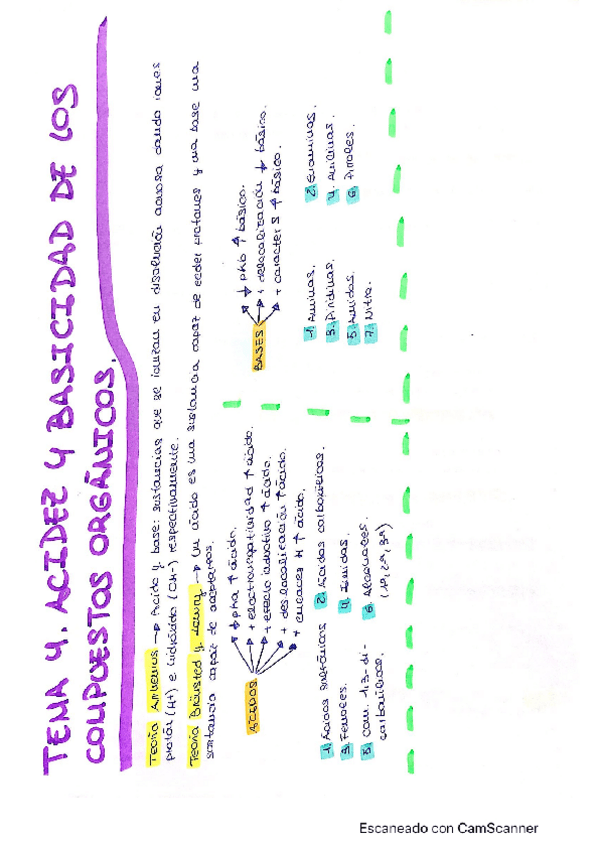 TEMA 4. ACIDEZ Y BASICIDAD DE LOS
COMPUESTOS ORGÁNICOS.
Teoría Arrhenius → Ácido y base: sustancias que se ionizan en disolución acuosa dando iones
protón (H+) e hidróxido (OH-) respectivamente.
Teoría Brönsted y Lowry → Un ácido es una sustancia capaz de ceder protones y una base una
sustancia capaz de aceptarlos.
ÁCIDOS
↓ pka ↑ ácido.
+ electronegatividad ↑ ácido.
+ efecto inductivo ↑ ácido.
+ deslocalización ↑ ácido.
+ enlaces H ↑ ácido.
1. Ácidos sulfónicos
2. Ácidos carboxílicos.
3. Fenoles.
4. Imidas.
5. Com. 1,3-di-
carbonílicos.
6. Alcoholes.
(1º, 2º, 3º)
BASES
↓ pkb ↑ básico.
+ delocalización ↓ básico.
+ caracter S ↑ básico.
1. Aminas.
2. Enaminas.
3. Piridinas.
4. Anilinas.
5. Amidas.
6. Pirroles.
7. Nitro.
Escaneado con CamScanner